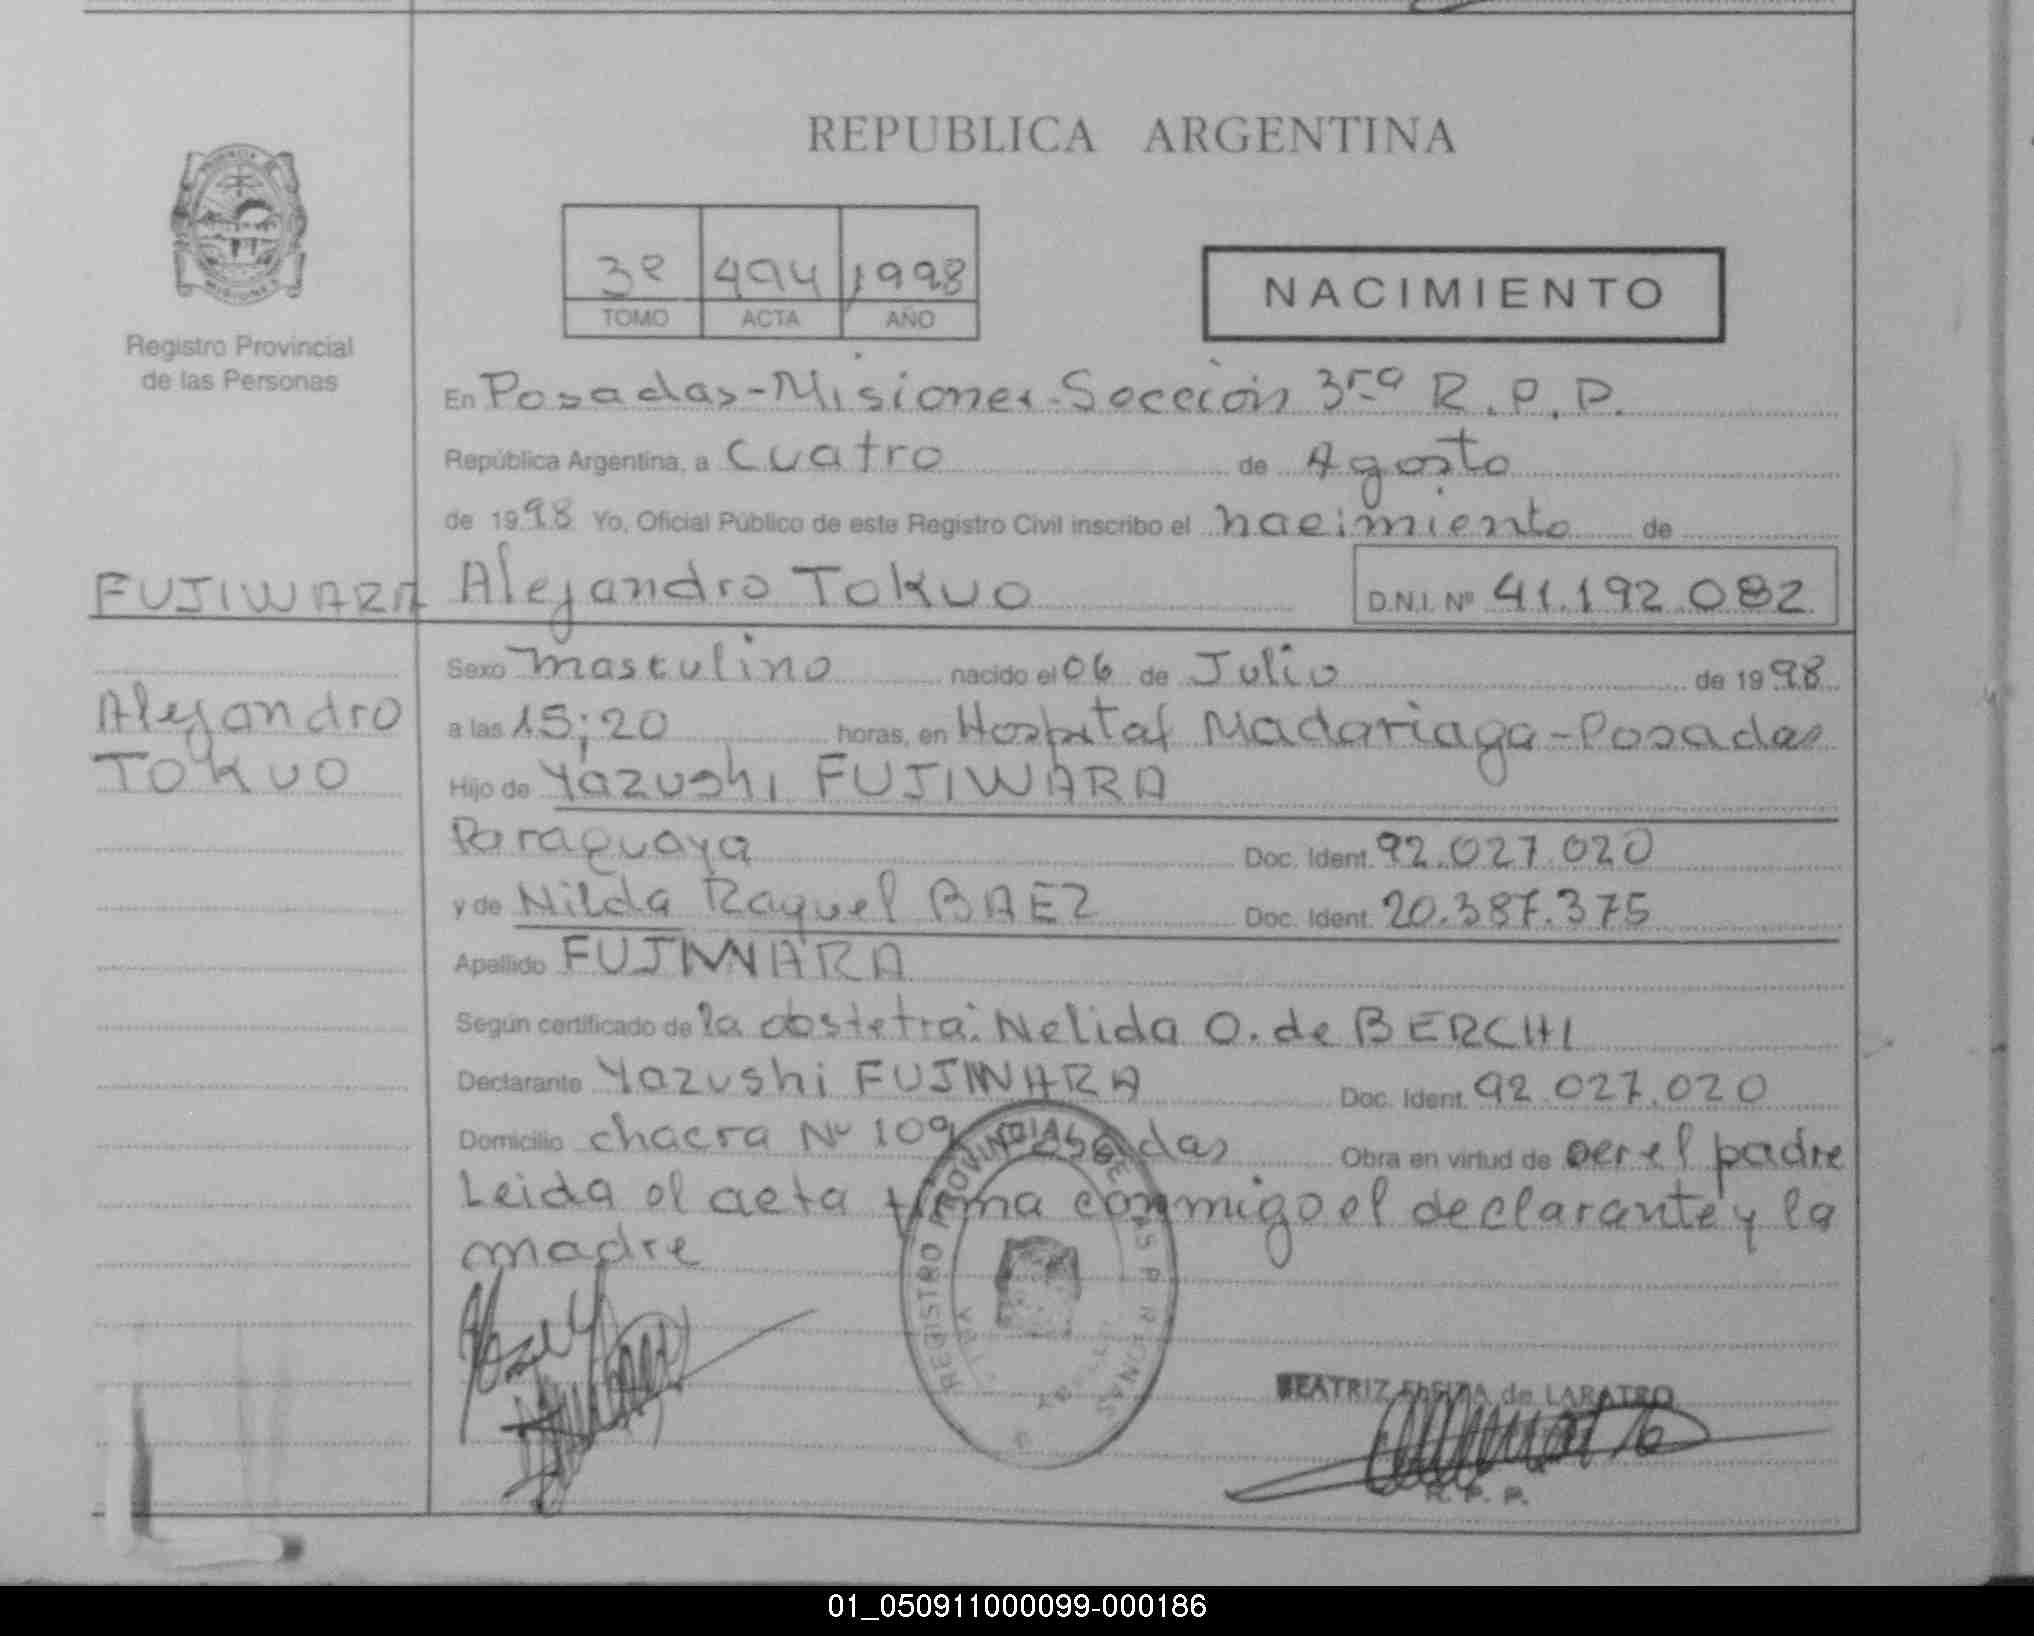 REPUBLICA ARGENTINA
MISIONES
Registro Provincial
de las Personas
3º 494 1998
TOMO ACTA AÑO
NACIMIENTO
En Posadas-Misiones-Sección 3ra R.P.P.
República Argentina, a Cuatro de Agosto
de 1998 Yo, Oficial Público de este Registro Civil inscribo el nacimiento de
FUJIWARA Alejandro Tokuo D.N.I. Nº 41.192.082
Sexo masculino nacido el 06 de Julio de 1998
Alejandro
Tokuo
a las 15;20 horas, en Hospital Madariaga-Posadas
Hijo de Yazushi FUJIWARA
Paraguaya Doc. Ident. 92.027.020
y de Nilda Raquel BAEZ Doc. Ident. 20.387.375
Apellido FUJIWARA
Según certificado de la obstetra: Nelida O. de BERCHI
Declarante Yazushi FUJIWARA Doc. Ident. 92.027.020
Domicilio chacra Nº 109 Posadas Obra en virtud de ser el padre
Leida el acta firma conmigo el declarante y la
madre
REGISTRO PROVINCIAL DE LAS PERSONAS
BEATRIZ de LARATRO
R. P. P.
01_050911000099-000186